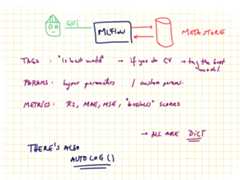 GUI
MLflow
METASTORE
TAGS : "is best model" → if you do CV → tag the best model
PARAMS : hyper parameters / custom params
METRICS : R2, MAE, MSE, "business" scores
→ ALL ARE DICT
THERE'S ALSO
AUTOLOG()